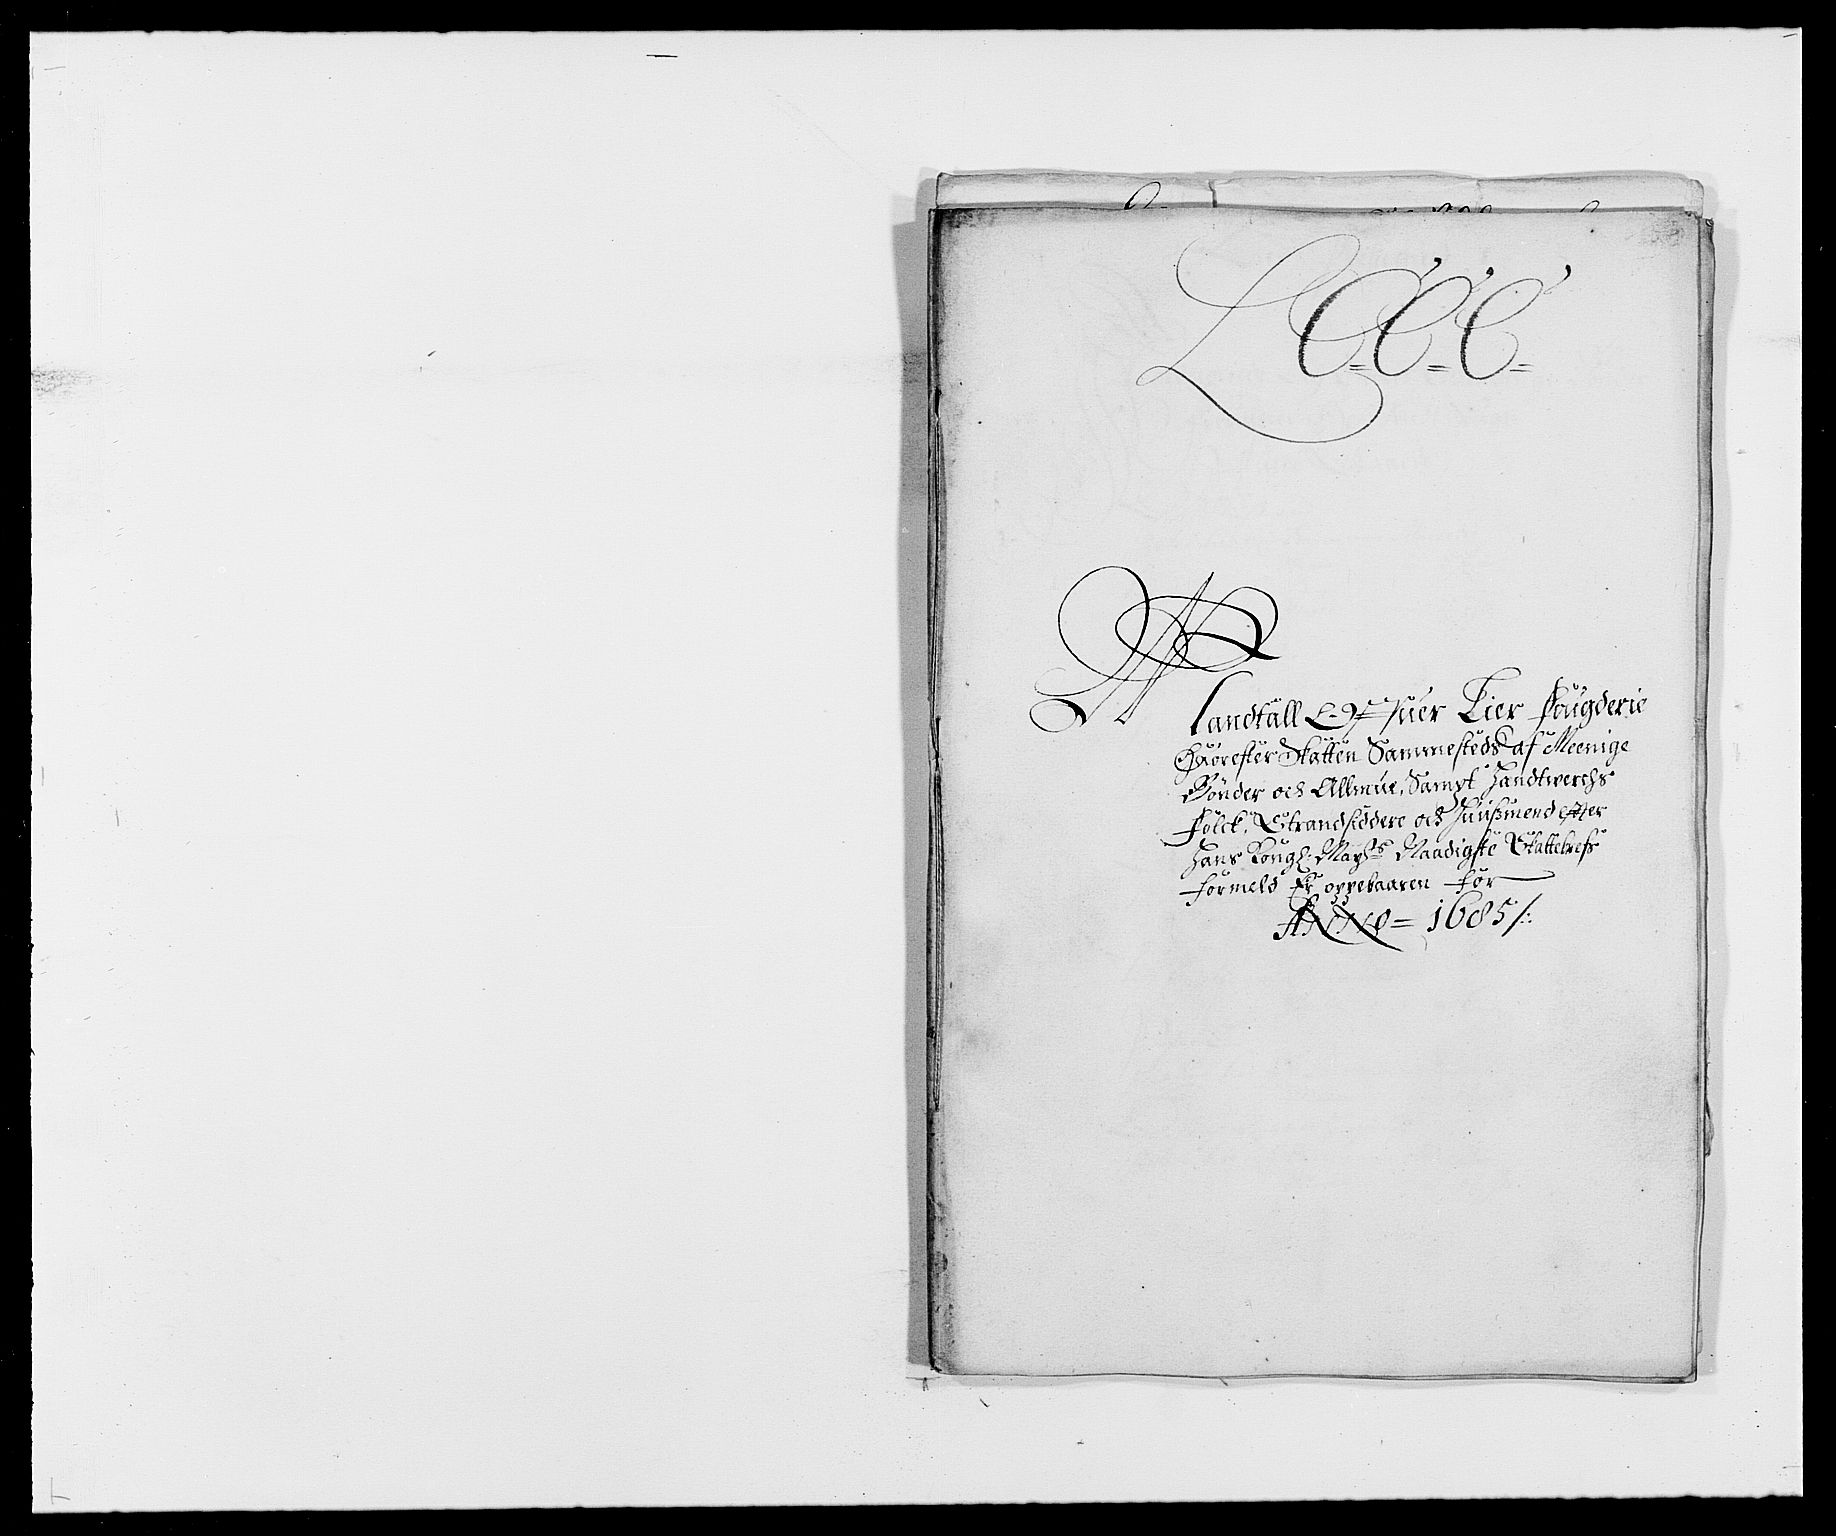 L C C C
Mandtall Ofuer Lier Fougderie
Huorefter Skatten Sammesteds af Meenige
Bønder och Allmue, Sampt Handtwerchs
folck, Strandsiddere och Huusmend efter
Hans Kongl: Mayts Naadigste Skattebrefs
formeld Er oppebaaren for
ANNO = 1685 /: